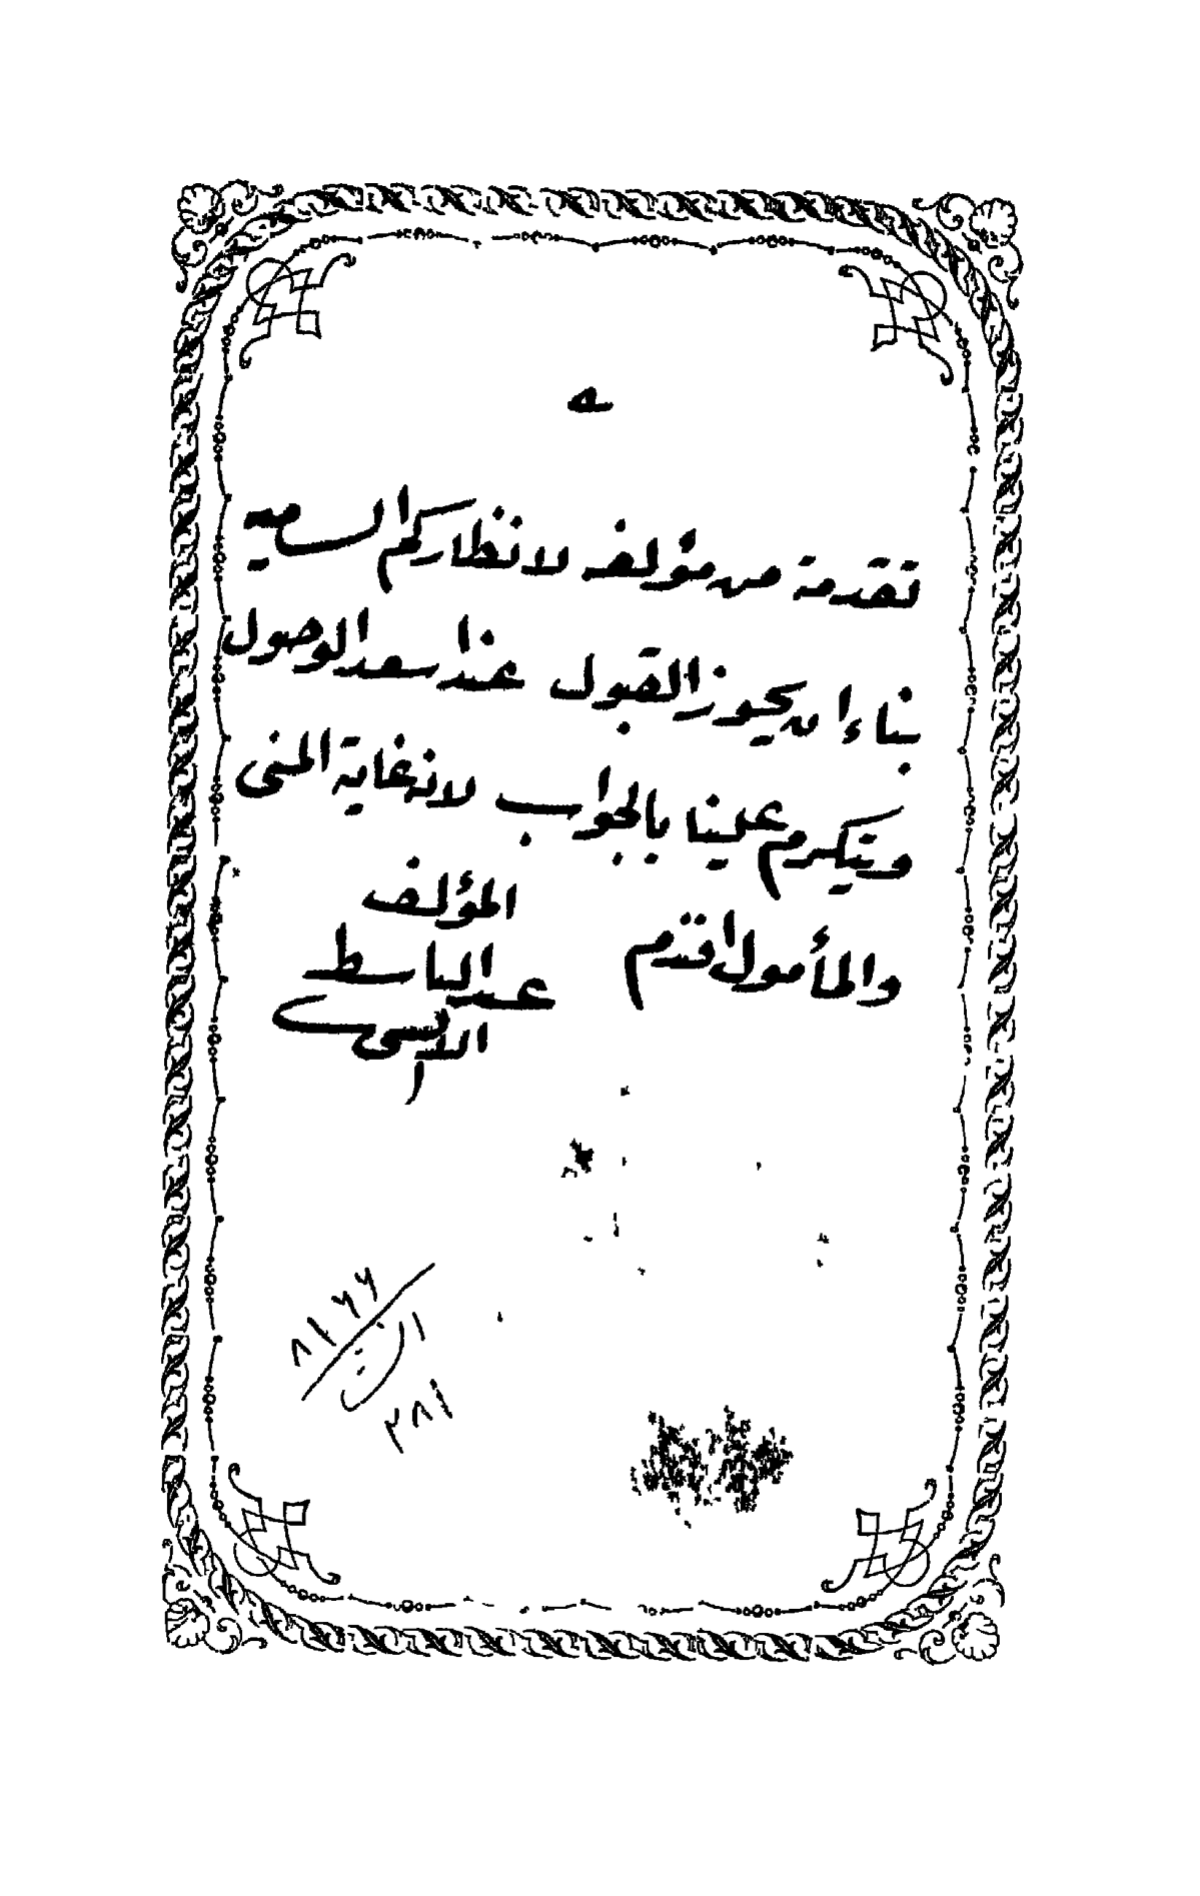 تقدمة من مؤلفه لانظاركم الساميه
بناء ان يحوز القبول عند اسعد الوصول
ويتكرم علينا بالجواب لانه غاية المنى
والمأمول افندم
المؤلف
عبد الباسط
الانسى
٨١٦٦
٢٨١